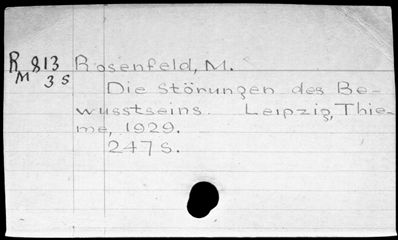 R 813 Rosenfeld, M.
M 3 S
Die Störungen des Be-
wusstseins. Leipzig, Thie-
me, 1929.
247 S.